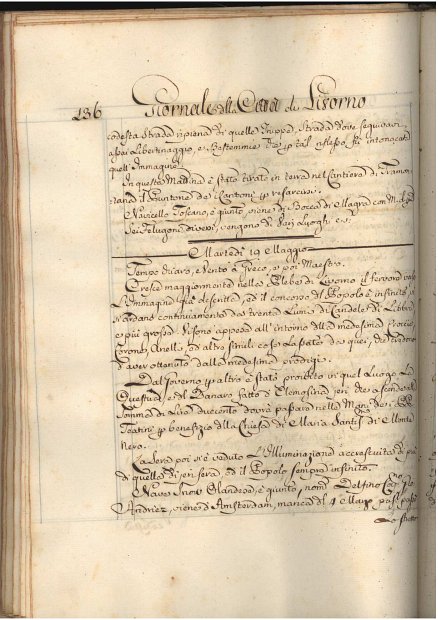 136 Giornale della Città di Livorno
codesta Strada ripiena di quelle Truppe, Strada dove seguivavi
assai Libertinaggio, e Bestemmie
quell'Immagine.
In questa Mattina è stato tirato in terra nel Cantiere di
il Puntone dei Cantoni p
Navicello Toscano, è giunto, viene di Bocca di Magra con
Sei Felugoni diversi, vengono di Vari Luoghi
Martedì 19 Maggio
Tempo chiaro, e Vento a Greco, e poi Maestro.
Cresce maggiormente nella Plebe di Livorno il fervore
l'Immagine già descritta, ed il concorso del Popolo è infinito, e
ardano continuamente da trenta Lumi di Candele di Libbra
e più grosse. Visono appese all'intorno della medesima Crocie,
Corone, Anelli, ed altre simili cose lasciate da quei, che credono
d'aver ottenuto dalla medesima prodigi.
Dal Governo p altro è stato proibito in quel Luogo la
Questua, e del Danaro fatto d'Elemosina, jeri che ascende alla
Somma di Lire duecento dovrà passare nelle Mani dei
Teatini p benefizio della Chiesa di Maria Santis di Monte
Nero.
La Sera poi s'è veduto l'Illuminazione accresciuta di più
di quella di jeri sera, ed il Popolo sempre infinito.
Nave Snow Olandese, è giunto, nom Delfino Cap
Andriez, viene d'Amsterdam, manca del 4 Marzo